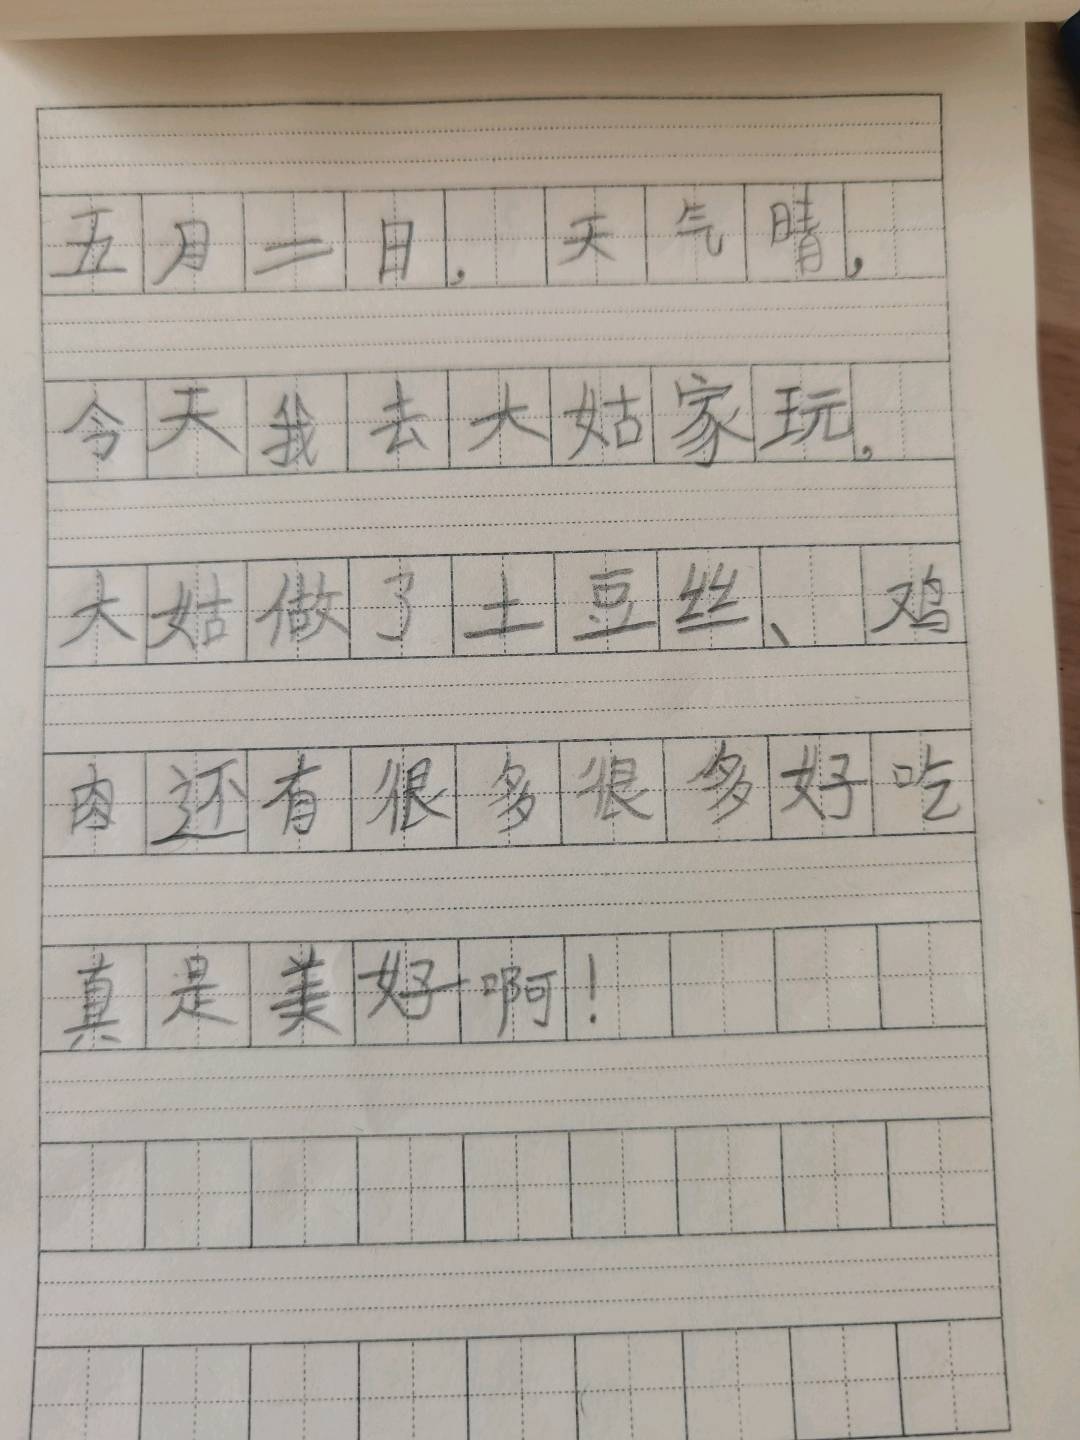 五月二日，天气晴，
今天我去大姑家玩，
大姑做了土豆丝、鸡
肉还有很多很多好吃
真是美好啊！